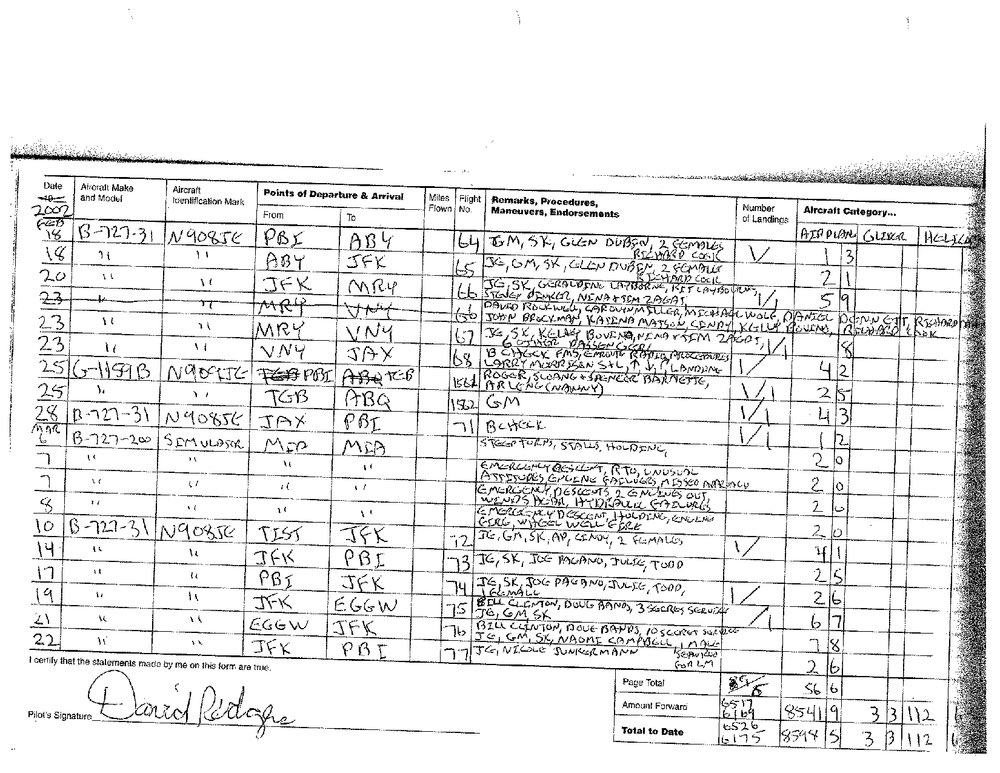 Date Aircraft Make and Model Aircraft Identification Mark Points of Departure & Arrival Miles Flown Flight No. Remarks, Procedures, Maneuvers, Endorsements Number of Landings Aircraft Category...
2002 From To AIRPLAN GLIDER HELIC
FEB
18 B-727-31 N908JE PBI ABY 64 JE, GM, SK, GLEN DUBIN, 2 FEMALES 1/ 1 3
RICHARD COOK
18 " " ABY JFK 65 JE, GM, SK, GLEN DUBIN, 2 FEMALES 2 1
RICHARD COOK
20 " JFK MRY 66 JE, SK, GERALDINE LAYBORNE, KIT LAYBOURNE, 1/1 5 9
STEVEN PINKER, NINA + TIM ZAGAT,
23 " MRY VNY 66 DAVID ROCKWELL, CAROLYN MILLER, MICHAEL WOLF, DANIEL DENNETT, RICHARD
JOHN BROCKMAN, KATINA MATSON, CINDY, KELLY BOVINO, RICHARD COOK
23 " " MRY VNY 67 JE, SK, KELLY BOVINO, NINA + TIM ZAGAT, 1/1 8
6 OTHER PASSENGERS
23 " " VNY JAX 68 B CHECK FMS, RADIO PROCEDURES 1/ 4 2
LARRY MORRISON S+L, LANDING
25 G-1159B N909JE TEB PBI ABQ TEB 1561 ROGER, SLOANE + SPENCER BARNETTE, 1/1 2 5
ARLENE (NANNY)
25 " " TEB ABQ 1562 GM 1/1 4 3
28 B-727-31 N908JE JAX PBI 71 B CHECK 1/1 1 2
MAR
6 B-727-200 SIMULATOR MIA MIA STEEP TURNS, STALLS, HOLDING, 2 0
7 " " " " EMERGENCY DESCENT, RTO, UNUSUAL 2 0
ATTITUDES ENGINE FAILURES, MISSED APPROACH
7 " " " " EMERGENCY, DESCENTS 2 ENGINES OUT, 2 0
WINDSHEAR, HYDRAULIC FAILURES
8 " " " " EMERGENCY DESCENT, HOLDING, ENGINE 2 0
FIRE, WHEEL WELL FIRE
10 B-727-31 N908JE TIST JFK 72 JE, GM, SK, AP, CINDY, 2 FEMALES 1/ 4 1
14 " " JFK PBI 73 JE, SK, JOE PAGANO, JULIE, TODD 2 5
17 " " PBI JFK 74 JE, SK, JOE PAGANO, JULIE, TODD, 1/ 2 6
1 FEMALE
19 " " JFK EGGW 75 BILL CLINTON, DOUG BANDS, 3 SECRET SERVICE /1 6 7
JE, GM, SK
21 " " EGGW JFK 76 BILL CLINTON, DOUG BANDS, 10 SECRET SERVICE 7 8
JE, GM, SK, NAOMI CAMPBELL, 1 MALE
22 " " JFK PBI 77 JE, NICOLE JUNKERMANN 2 6
FOR LM
I certify that the statements made by me on this form are true.
Page Total 56 6
Pilot's Signature David Rodgers
Amount Forward 6517 6169 8541 9 3 3 112 6
Total to Date 6526 6175 8598 5 3 3 112 6